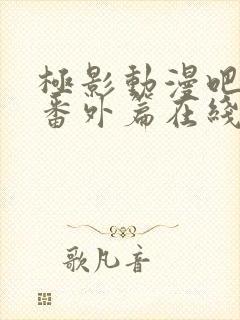 極影動漫吧
番外篇在綫
歌凡音